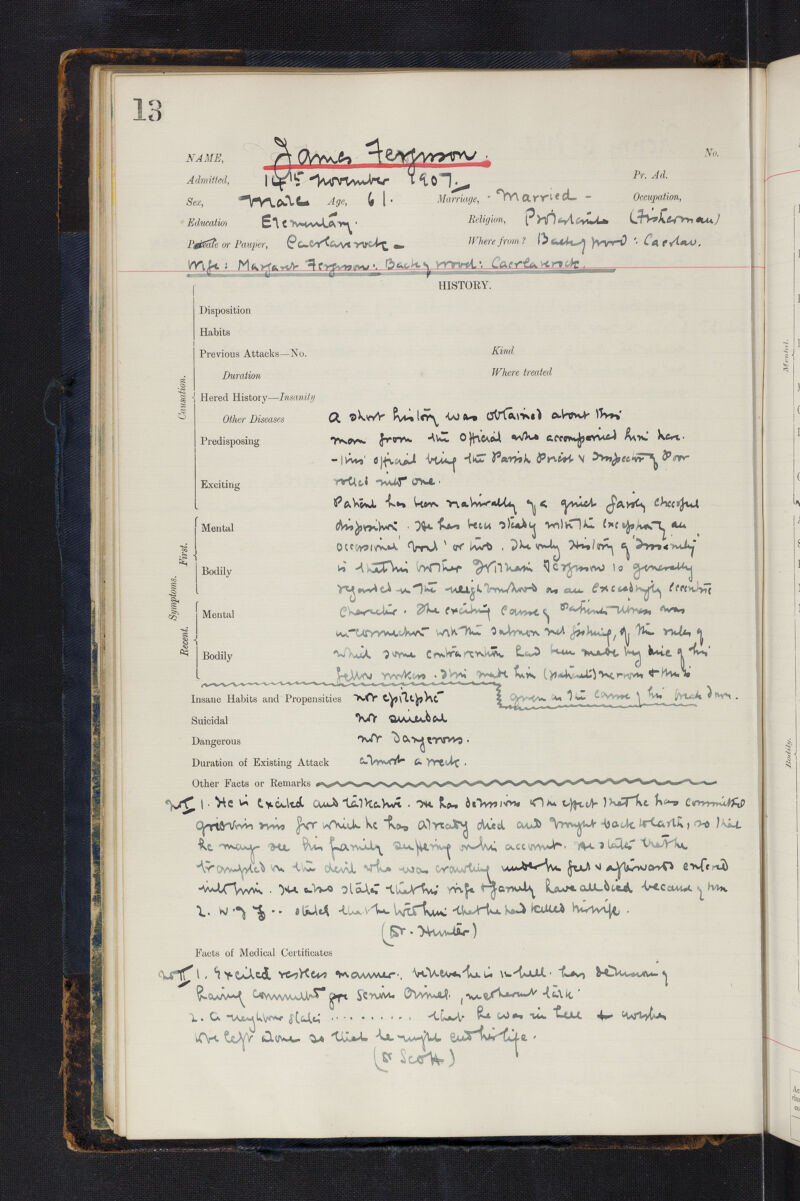 13
NAME, James Ferguson. No.
Admitted, 14th November 1907. Pr. Ad.
Sex, Male Age, 61. Marriage, - Married - Occupation,
Education Elementary. Religion, Protestant (Fisherman)
Private or Pauper, Caerlaverock - Where from? Back of Wood : Caerlav.
Wife : Margaret Ferguson : Back of Wood : Caerlaverock.
HISTORY.
Causation.
Disposition
Habits
Previous Attacks—No. Kind
Duration Where treated
Hered History—Insanity
Other Diseases A short history was obtained about this
Predisposing man from the Official who accompanied him here.
- this official being the Parish Priest & Inspector of Poor
Exciting rolled into one.
Patient has been naturally of a quiet fairly cheerful
Symptoms. First. Recent.
Mental disposition. He has been steady with the exception of an
occasional 'bout' or two. The only History of Insanity
Bodily is that his brother William Ferguson is generally
regarded in the neighbourhood as an exceedingly eccentric
Mental Character. The exciting cause of Patient's illness was
in connection with the salmon net fishing, of the rules of
Bodily which some contravention had been made by one of his
fellow workers. This made him (patient) nervous & this is
Insane Habits and Propensities not epileptic given as the cause of his break down.
Suicidal not suicidal
Dangerous not dangerous.
Duration of Existing Attack almost a week.
Other Facts or Remarks
I 1. He is excited and talkative. He has delusions to the effect that he has committed
grievous sins for which he has already died and brought back to earth, so that
he may see his family suffering on his account. He states that he
trampled on the devil who was crawling under his feet & afterwards entered
into him. He also states that his wife & family have all died because of him
2. states that he told him that he had killed his wife.
(Dr. Hunter)
Facts of Medical Certificates
II 1. Excited restless manner. believes he is in hell. has delusions of
having committed serious crimes, incoherent talk.
2. A neighbour states .......... that he was in hell & wishes
to be left alone so that he might end his life.
(Dr Scott)
Mental.
Bodily.